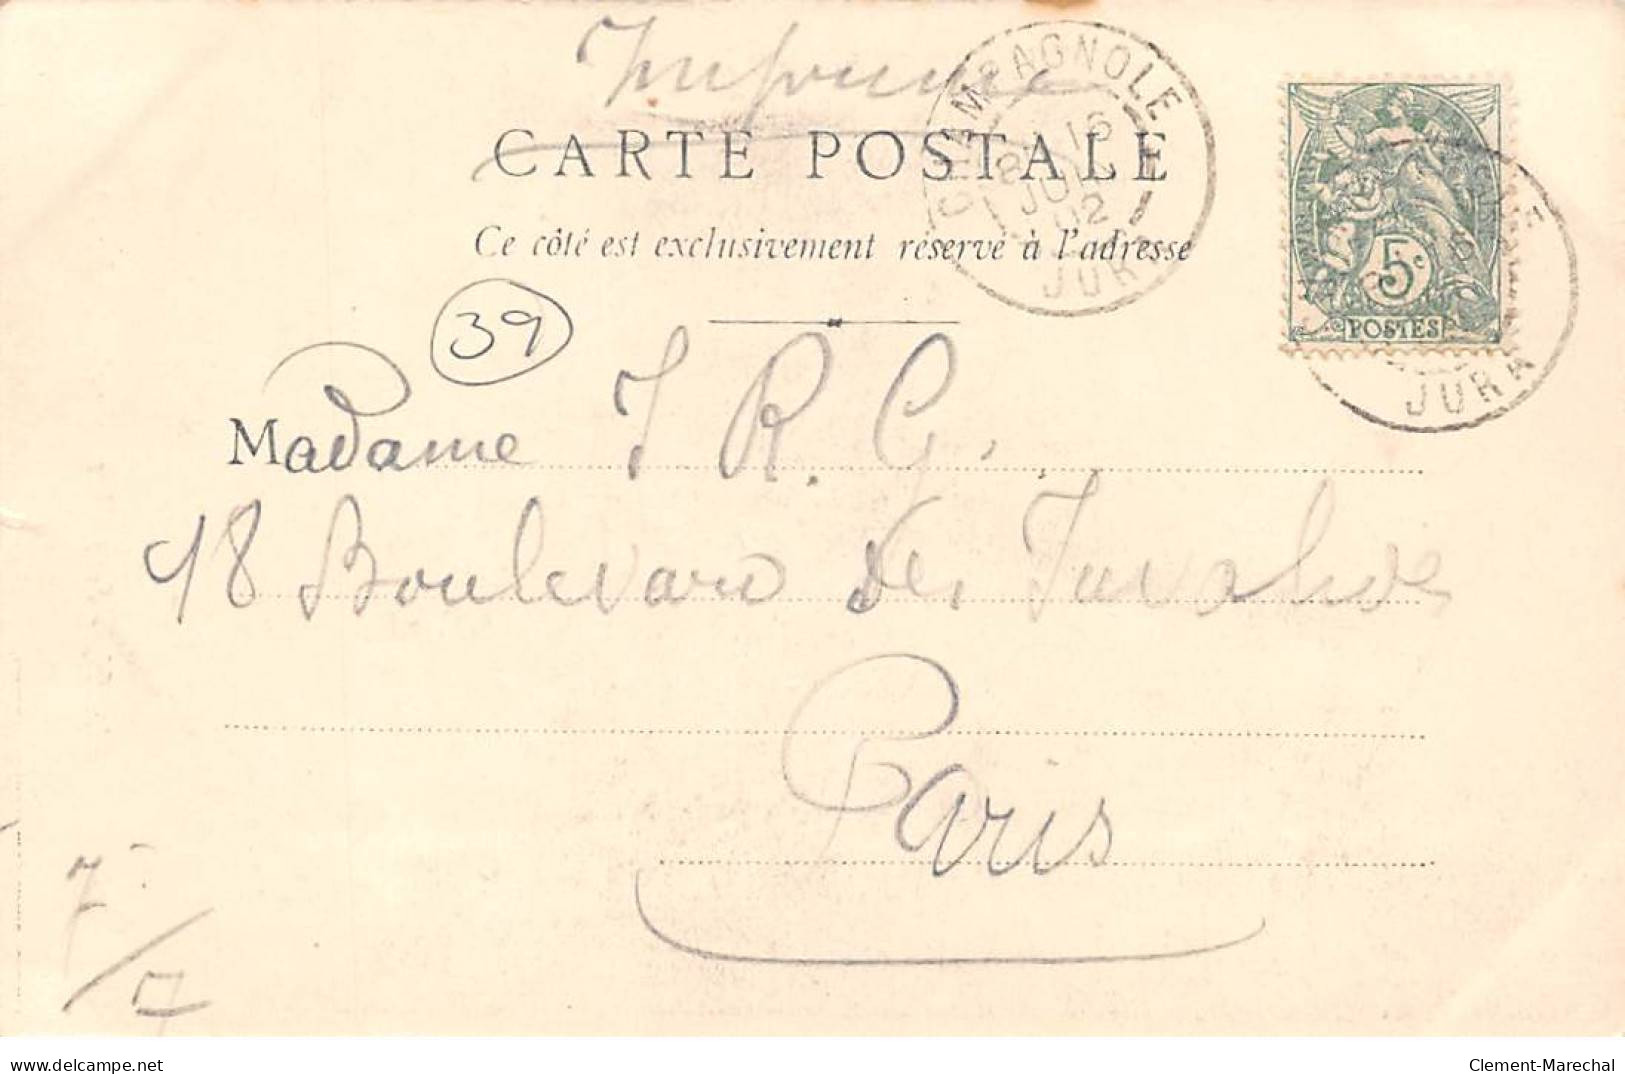 Imprimé
CARTE POSTALE
Ce côté est exclusivement réservé à l'adresse
CHAMPAGNOLE
16
JUIL
02
JURA
5c
POSTES
JURA
39
Madame J R. G.
18 Boulevard des Invalides
Paris
7
7
delcampe.net
Clement-Marechal